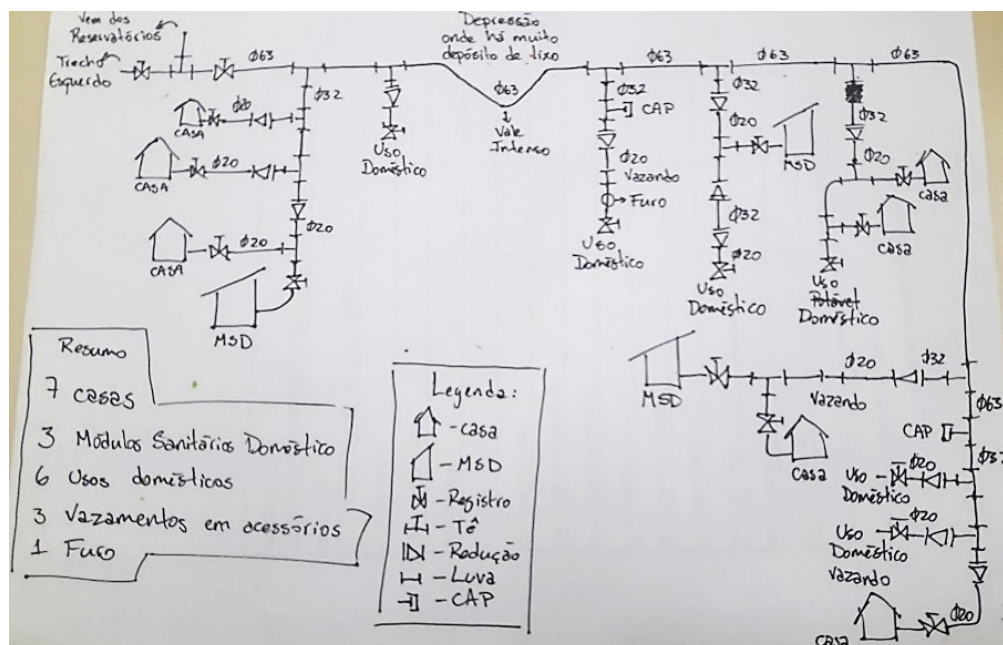 Vem dos
Reservatórios
Trecho
Esquerdo
Ø63
Depressão
onde há muito
depósito de lixo
Ø63
Vale
Intenso
Ø63
Ø63
Ø63
Ø32
Ø20
CASA
Ø20
CASA
Ø20
Ø20
CASA
MSD
Uso
Doméstico
Ø32
CAP
Ø20
Vazando
Furo
Uso
Doméstico
Ø32
Ø20
MSD
Ø32
Ø20
Uso
Doméstico
Ø32
Ø20
casa
casa
Uso
Potável
Doméstico
MSD
Vazando
Ø20
Ø32
casa
Ø63
CAP
Ø32
Uso
Doméstico
Ø20
Uso
Doméstico
Vazando
Ø20
casa
Ø20
Resumo
7 casas
3 Módulos Sanitários Doméstico
6 Usos domésticos
3 Vazamentos em acessórios
1 Furo
Legenda:
- casa
- MSD
- Registro
- Tê
- Redução
- Luva
- CAP